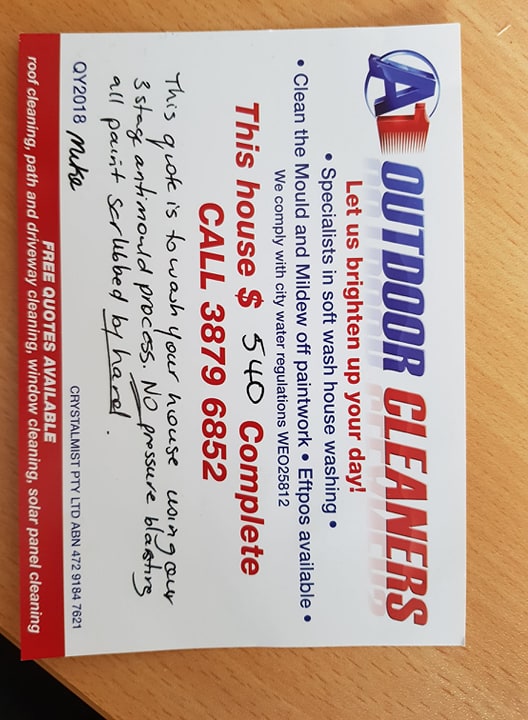 A1 OUTDOOR CLEANERS
Let us brighten up your day!
• Specialists in soft wash house washing •
• Clean the Mould and Mildew off paintwork • Eftpos available •
We comply with city water regulations WEO25812
This house $ 540 Complete
CALL 3879 6852
This quote is to wash your house using our
3 stage antimould process. NO pressure blasting
all paint scrubbed by hand.
QY2018 Mike
CRYSTALMIST PTY LTD ABN 472 9184 7621
FREE QUOTES AVAILABLE
roof cleaning, path and driveway cleaning, window cleaning, solar panel cleaning